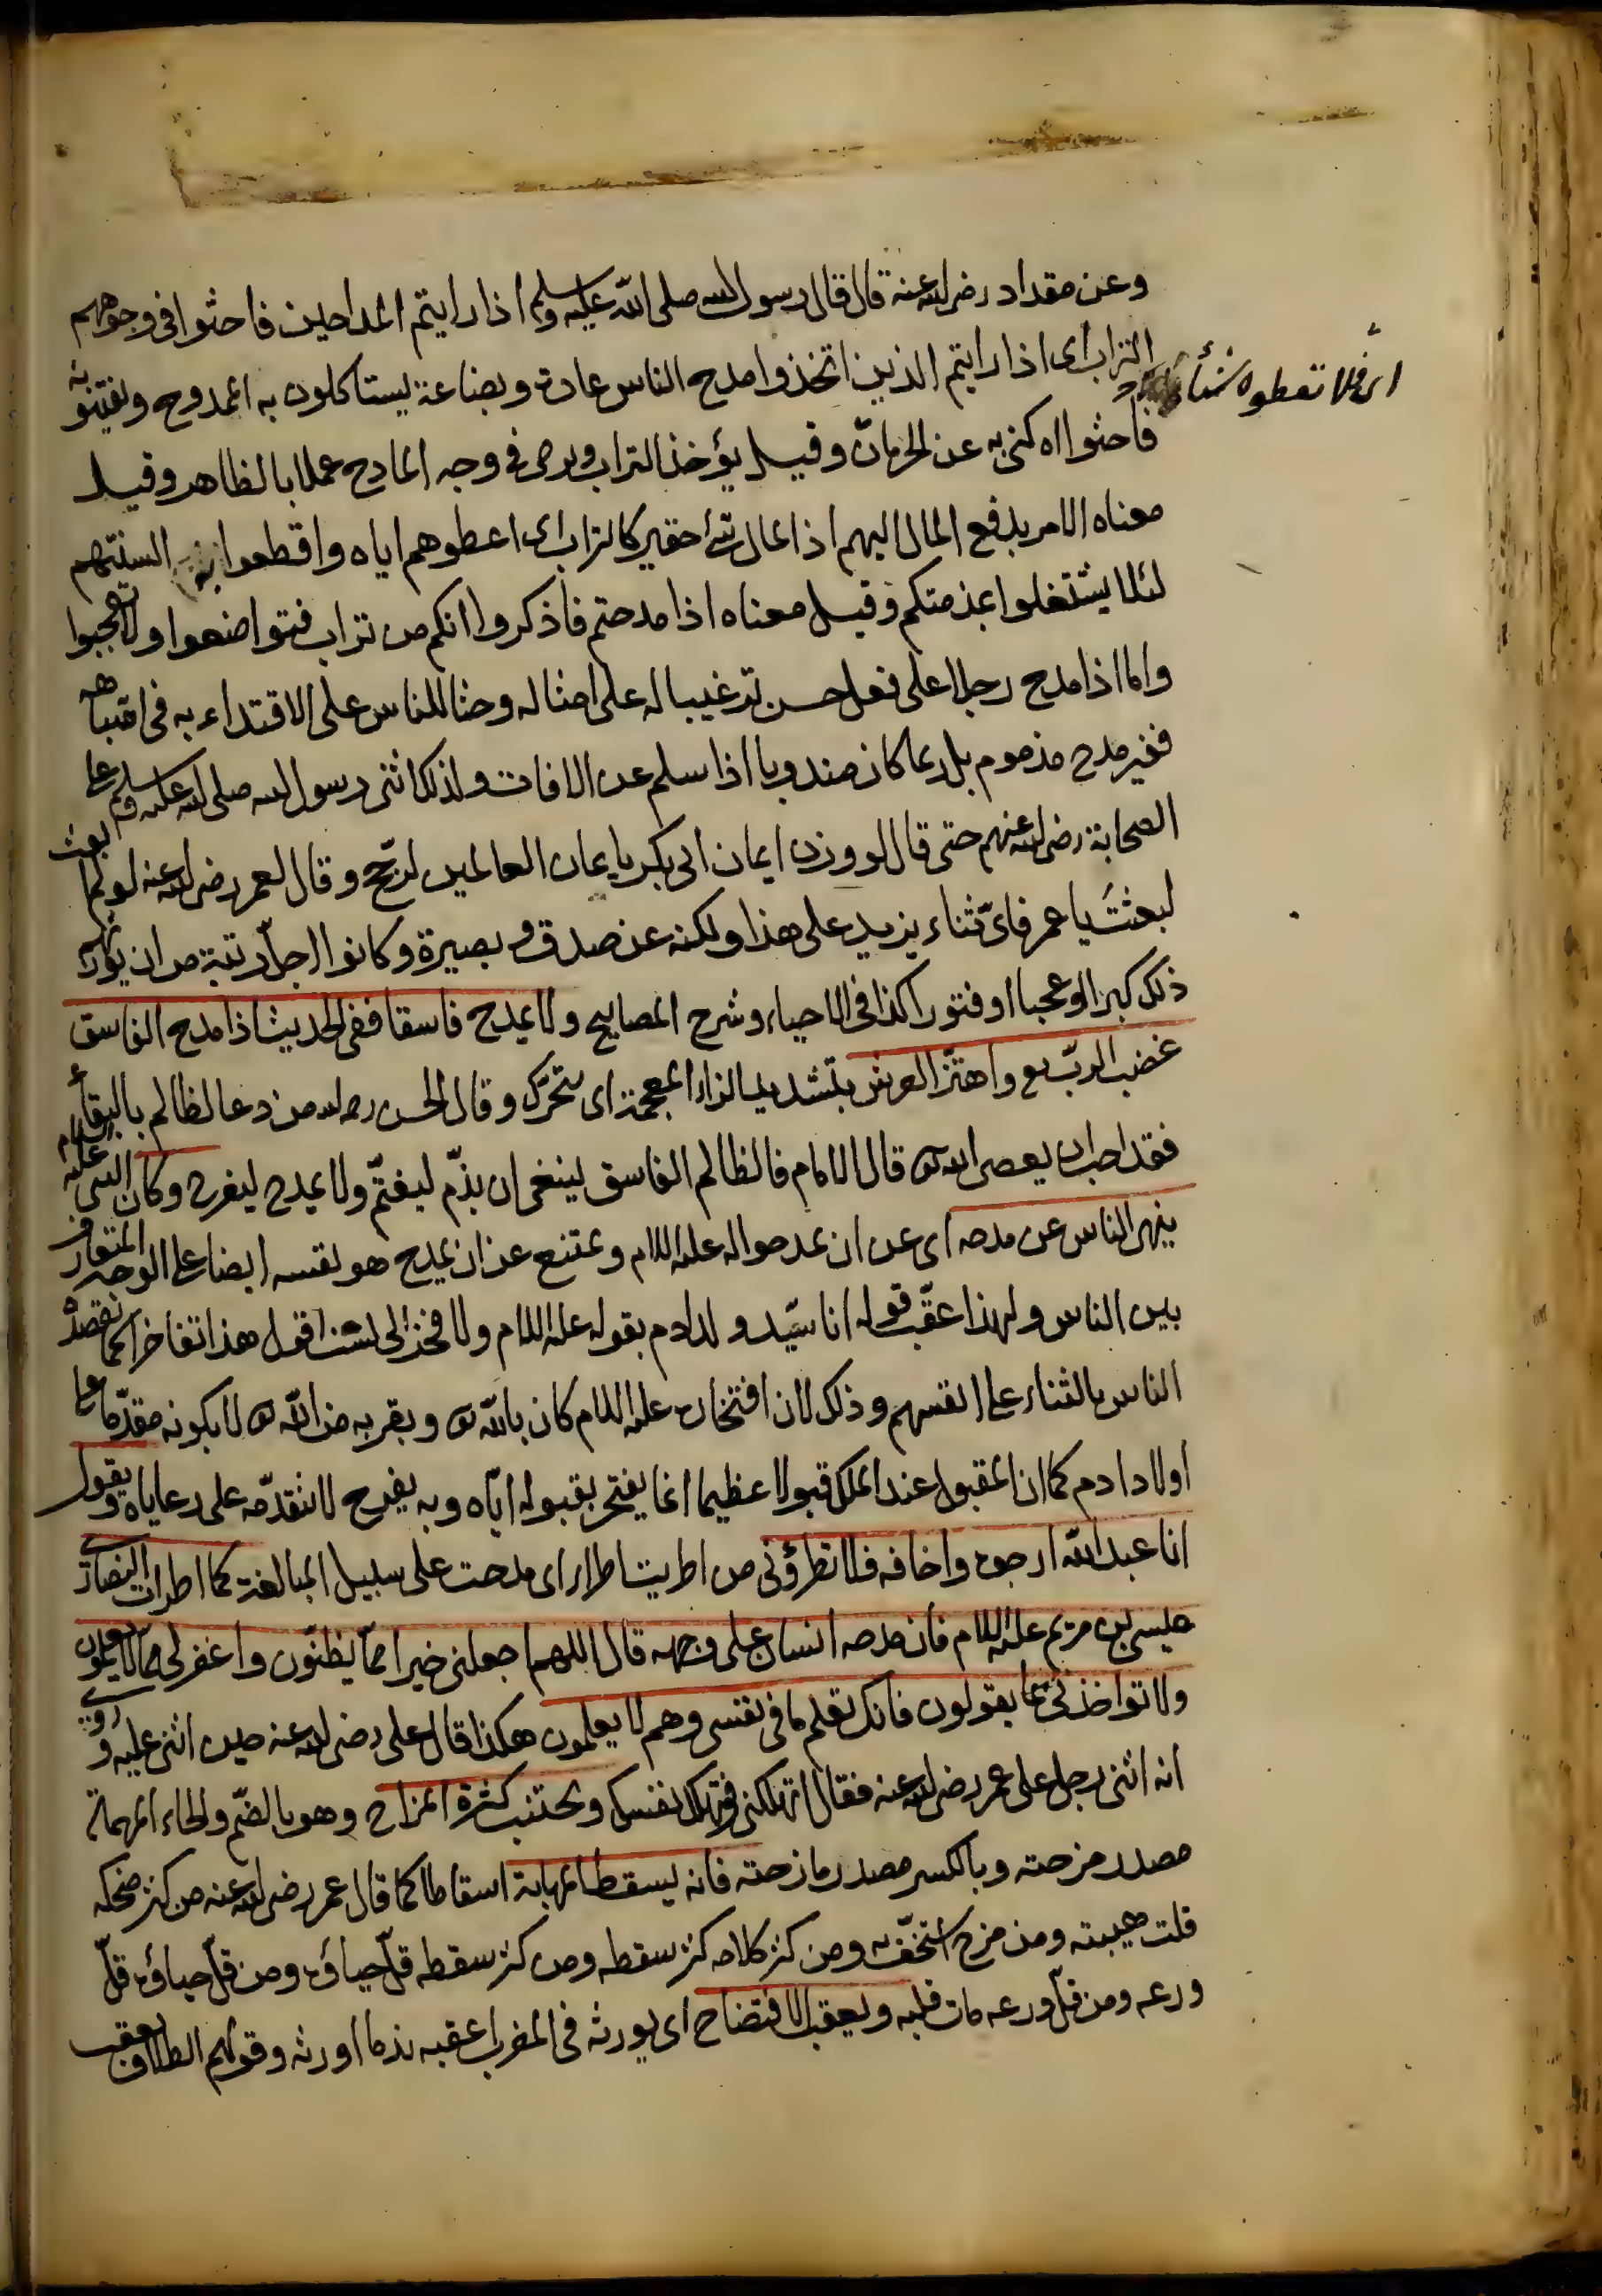 وعن مقداد رضى الله عنه قال قال رسول الله صلى الله عليه وسلم اذا رايتم المداحين فاحثوا فى وجوههم
التراب اى اذا رايتم الذين اتخذوا مدح الناس عادة وبضاعة يستاكلون به الممدوح ويفتنونه
اى فلا تعطوه شيئا
فاحثوا اه كنى به عن الحرمان وقيل يؤخذ التراب ويرمى فى وجه المادح عملا بالظاهر وقيل
معناه الامر بدفع المال اليهم اذ المال شئ حقير كالتراب اى اعطوهم اياه واقطعوا به السنتهم
لئلا يشتغلوا بمذمتكم وقيل معناه اذا مدحتم فاذكروا انكم من تراب فتواضعوا ولا تعجبوا
واما اذا مدح رجلا على فعل حسن ترغيبا له على امثاله وحثا للناس على الاقتداء به فى اشباهه
فغير مدح مذموم بل ربما كان مندوبا اذا سلم عن الافات ولذلك اثنى رسول الله صلى الله عليه وسلم على
الصحابة رضى الله عنهم حتى قال لو وزن ايمان ابى بكر بايمان العالمين لرجح وقال لعمر رضى الله عنه لو لم ابعث
لبعثت يا عمر فاىّ ثناء يزيد على هذا ولكنه عن صدق وبصيرة وكانوا اجلّ رتبة من ان يورثهم
ذلك كبرا او عجبا او فتورا كذا فى الاحياء وشرح المصابيح ولا يمدح فاسقا ففى الحديث اذا مدح الفاسق
غضب الربّ تع واهتزّ العرش بتشديد الزاء المعجمة اى تحرّك وقال الحسن رحمه الله من دعا لظالم بالبقاء
فقد احب ان يعصى الله تع قال الامام فالظالم الفاسق ينبغى ان يذمّ ليغتمّ ولا يمدح ليفرح وكان النبى عليه السلام
ينهى الناس عن مدحه اى عن ان يمدحوا له عليه السلام ويمتنع عن ان يمدح هو نفسه ايضا على الوجه المتعارف
بين الناس ولهذا عقّب قوله انا سيّد ولد ادم بقوله عليه السلام ولا فخر اى لست اقول هذا تفاخرا كما يقصده
الناس بالثناء على انفسهم وذلك لان افتخاره عليه السلام كان بالله تع وبقربه من الله تع لا بكونه مقدّما على
اولاد ادم كما ان المقبول عند الملك قبولا عظيما انما يفتخر بقبوله ايّاه وبه يفرح لا بتقدّمه على رعاياه ويقول
انا عبد الله ارجوه واخافه فلا تطرؤنى من اطريت اطراء اى مدحت على سبيل المبالغة كما اطرات النصارى
عيسى بن مريم عليه السلام فان مدحه انسان على وجهه قال اللهم اجعلنى خيرا ممّا يظنّون واغفر لى ممّا لا يعلمون
ولا تواخذنى بما يقولون فانك تعلم ما فى نفسى وهم لا يعلمون هكذا قال على رضى الله عنه حين اثنى عليه وروى
انه اثنى رجل على عمر رضى الله عنه فقال اتهلكنى وتهلك نفسك ويجتنب كثرة المزاح وهو بالضمّ والحاء المهملة
مصدر مزحته وبالكسر مصدر مازحته فانه يسقط المهابة اسقاطا كما قال عمر رضى الله عنه من كثر ضحكه
قلت هيبته ومن مزح استخفّ به ومن كثر كلامه كثر سقطه ومن كثر سقطه قلّ حياؤه ومن قلّ حياؤه قلّ
ورعه ومن قلّ ورعه مات قلبه ويعقب الافتضاح اى يورثه فى المغرب اعقبه ندما اورثه وقولهم الطلاق يعقب